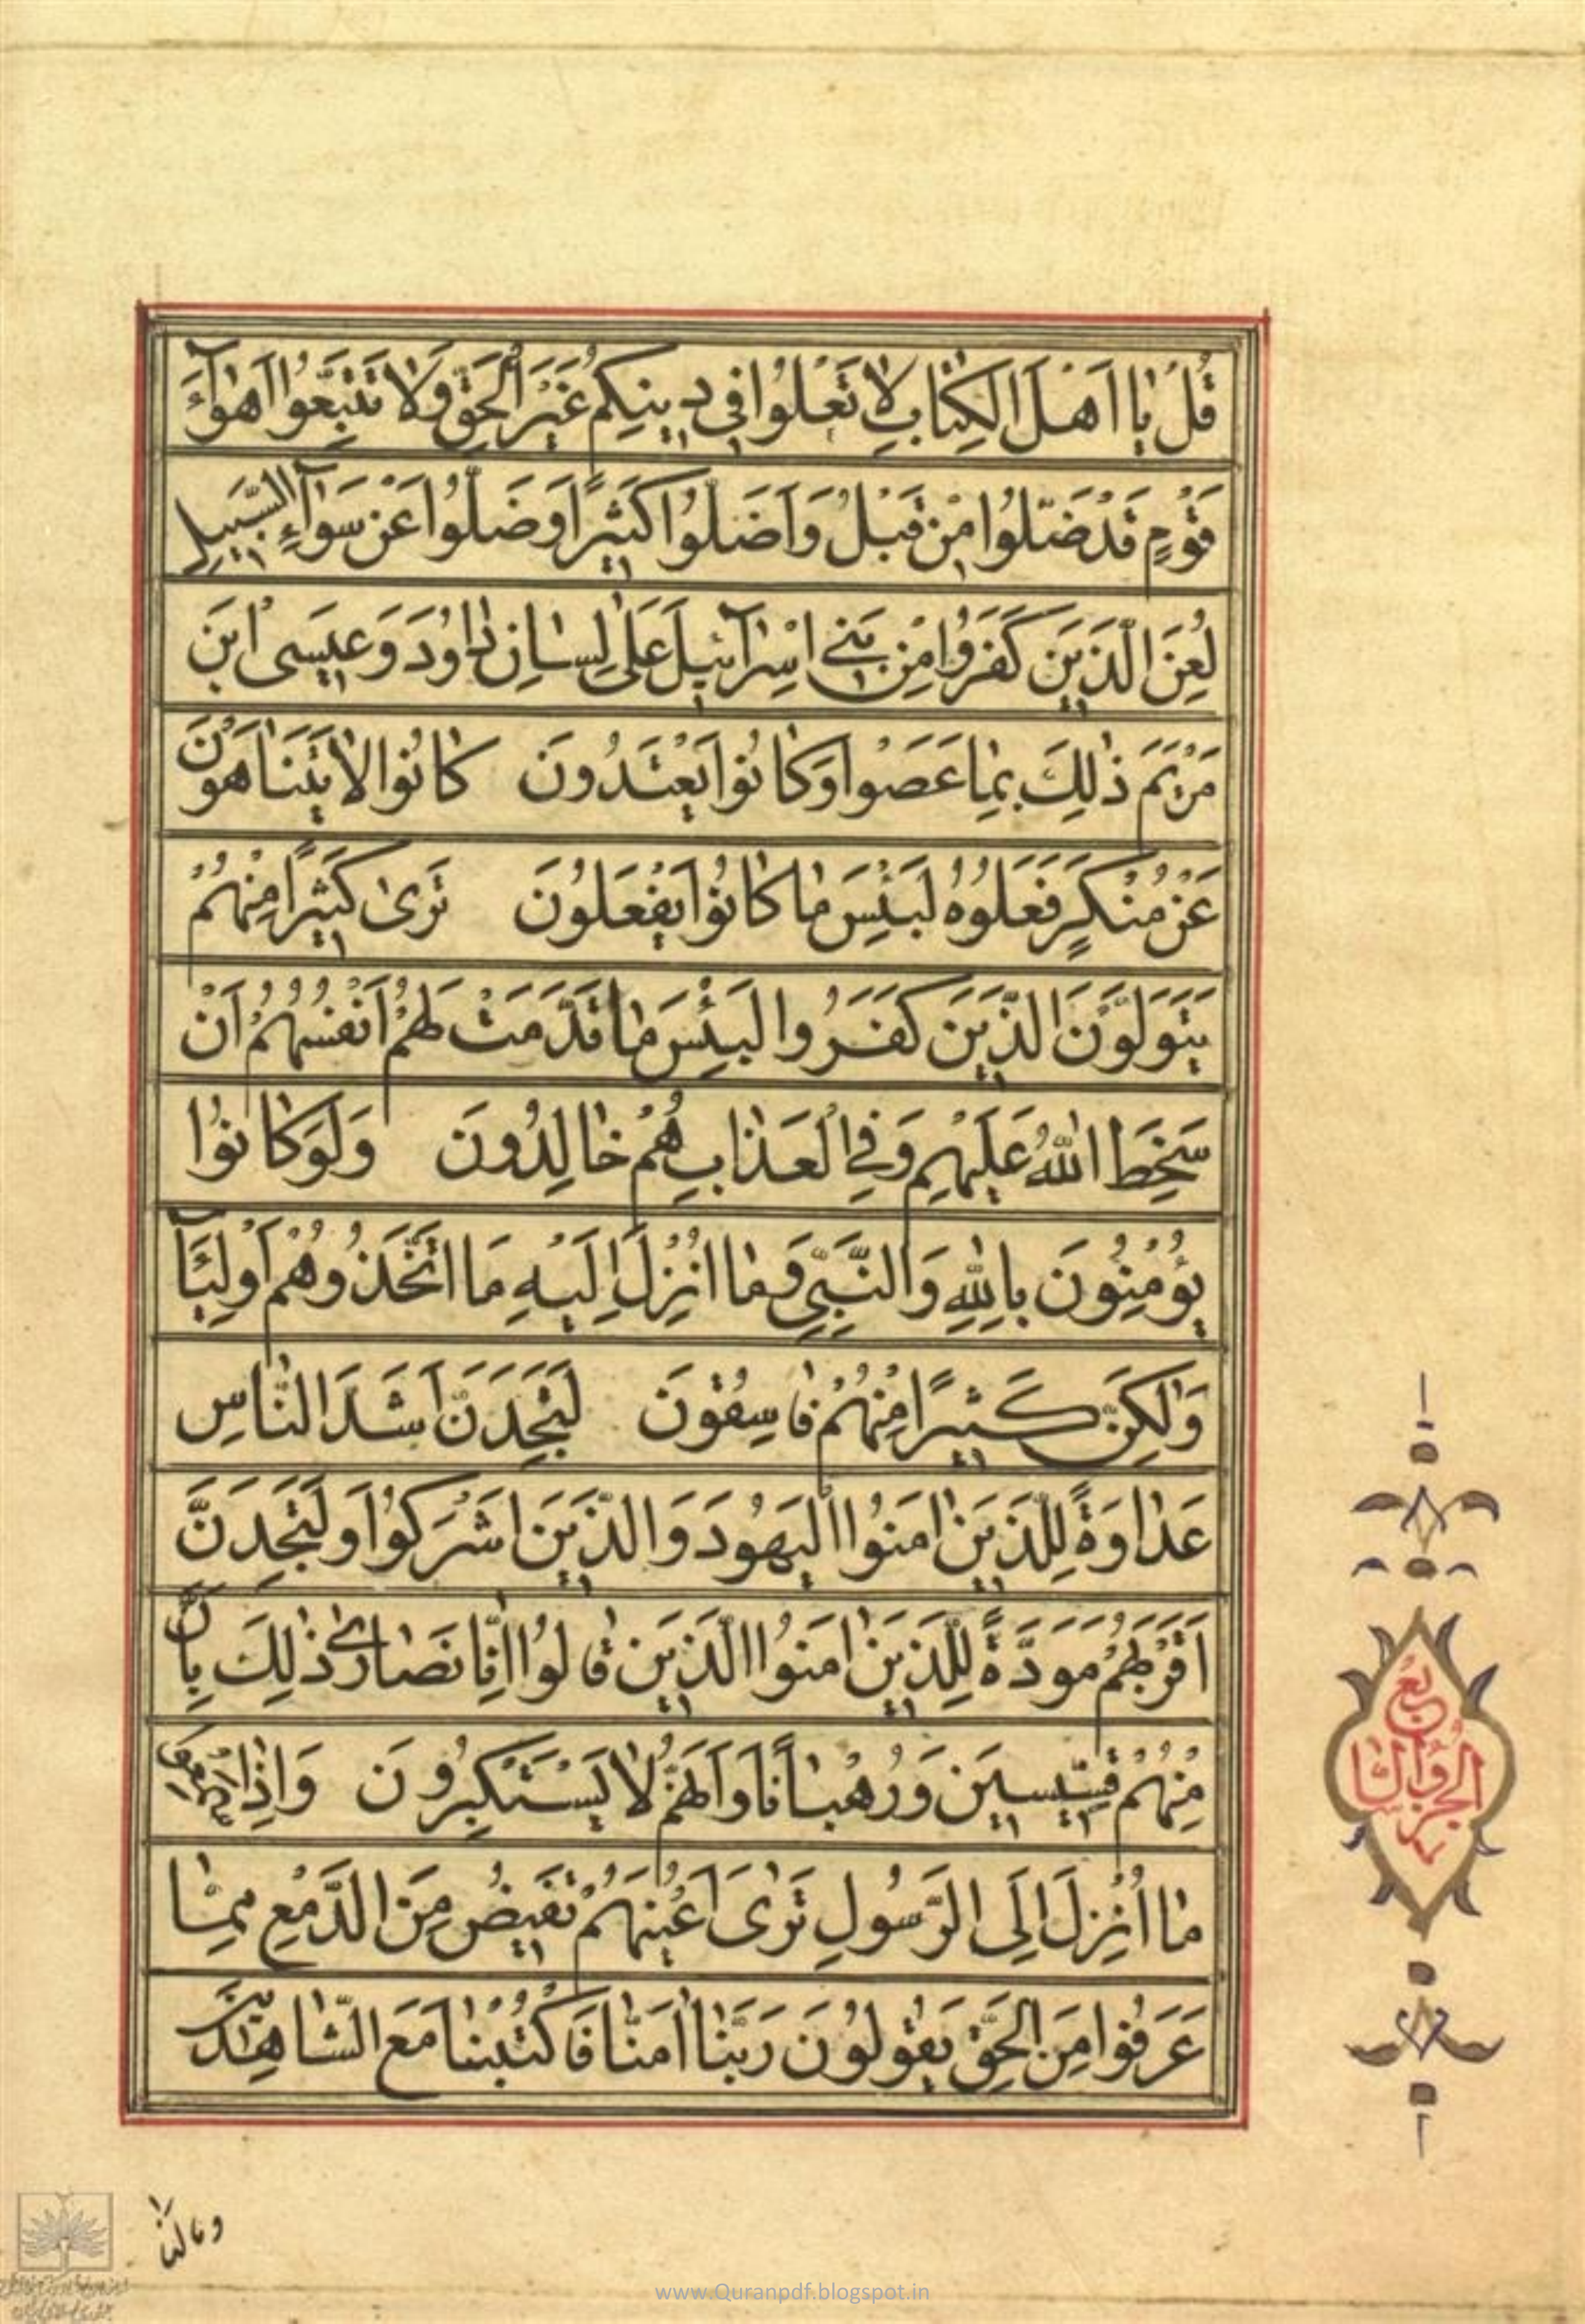 قُلْ يٰا اَهْلَ الْكِتٰابِ لٰا تَغْلُوا فِي دِينِكُمْ غَيْرَ الْحَقِّ وَلٰا تَتَّبِعُوا اَهْوٰآءَ
قَوْمٍ قَدْ ضَلُّوا مِنْ قَبْلُ وَاَضَلُّوا كَثِيرًا وَضَلُّوا عَنْ سَوٰآءِ السَّبِيلِ
لُعِنَ الَّذِينَ كَفَرُوا مِنْ بَنِي اِسْرٰآئِيلَ عَلٰى لِسٰانِ دٰاوُدَ وَعِيسَى ابْنِ
مَرْيَمَ ذٰلِكَ بِمٰا عَصَوْا وَكٰانُوا يَعْتَدُونَ كٰانُوا لٰا يَتَنٰاهَوْنَ
عَنْ مُنْكَرٍ فَعَلُوهُ لَبِئْسَ مٰا كٰانُوا يَفْعَلُونَ تَرٰى كَثِيرًا مِنْهُمْ
يَتَوَلَّوْنَ الَّذِينَ كَفَرُوا لَبِئْسَ مٰا قَدَّمَتْ لَهُمْ اَنْفُسُهُمْ اَنْ
سَخِطَ اللّٰهُ عَلَيْهِمْ وَفِي الْعَذٰابِ هُمْ خٰالِدُونَ وَلَوْ كٰانُوا
يُؤْمِنُونَ بِاللّٰهِ وَالنَّبِيِّ وَمٰا اُنْزِلَ اِلَيْهِ مَا اتَّخَذُوهُمْ اَوْلِيَآءَ
وَلٰكِنَّ كَثِيرًا مِنْهُمْ فٰاسِقُونَ لَتَجِدَنَّ اَشَدَّ النّٰاسِ
عَدٰاوَةً لِلَّذِينَ اٰمَنُوا الْيَهُودَ وَالَّذِينَ اَشْرَكُوا وَلَتَجِدَنَّ
اَقْرَبَهُمْ مَوَدَّةً لِلَّذِينَ اٰمَنُوا الَّذِينَ قٰالُوا اِنّٰا نَصٰارٰى ذٰلِكَ بِاَنَّ
مِنْهُمْ قِسِّيسِينَ وَرُهْبٰانًا وَاَنَّهُمْ لٰا يَسْتَكْبِرُونَ وَاِذٰا سَمِعُوا
مٰا اُنْزِلَ اِلَى الرَّسُولِ تَرٰى اَعْيُنَهُمْ تَفِيضُ مِنَ الدَّمْعِ مِمّٰا
عَرَفُوا مِنَ الْحَقِّ يَقُولُونَ رَبَّنٰا اٰمَنّٰا فَاكْتُبْنٰا مَعَ الشّٰاهِدِينَ
وما لنا
www.Quranpdf.blogspot.in